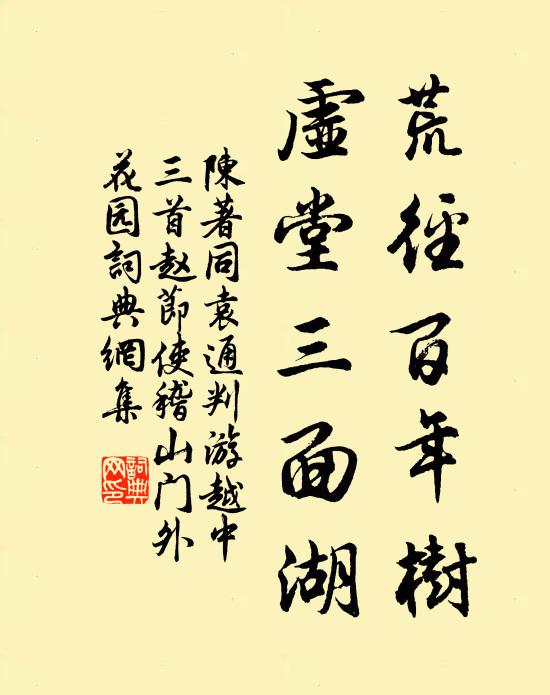 荒徑百年樹
虛堂三面湖
陳著同袁通判游越中
三首赵節使稽山門外
花园詞典網集
詞典
网印